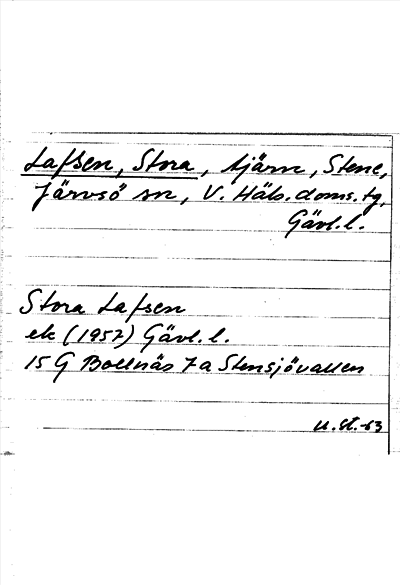 Lafsen, Stora, tjärn, Stene,
Järvsö sn, V. Häls. doms. tg,
Gävl. l.
Stora Lafsen
ek (1957) Gävl. l.
15 G Bollnäs 7 a Stensjövallen
u. st. -63